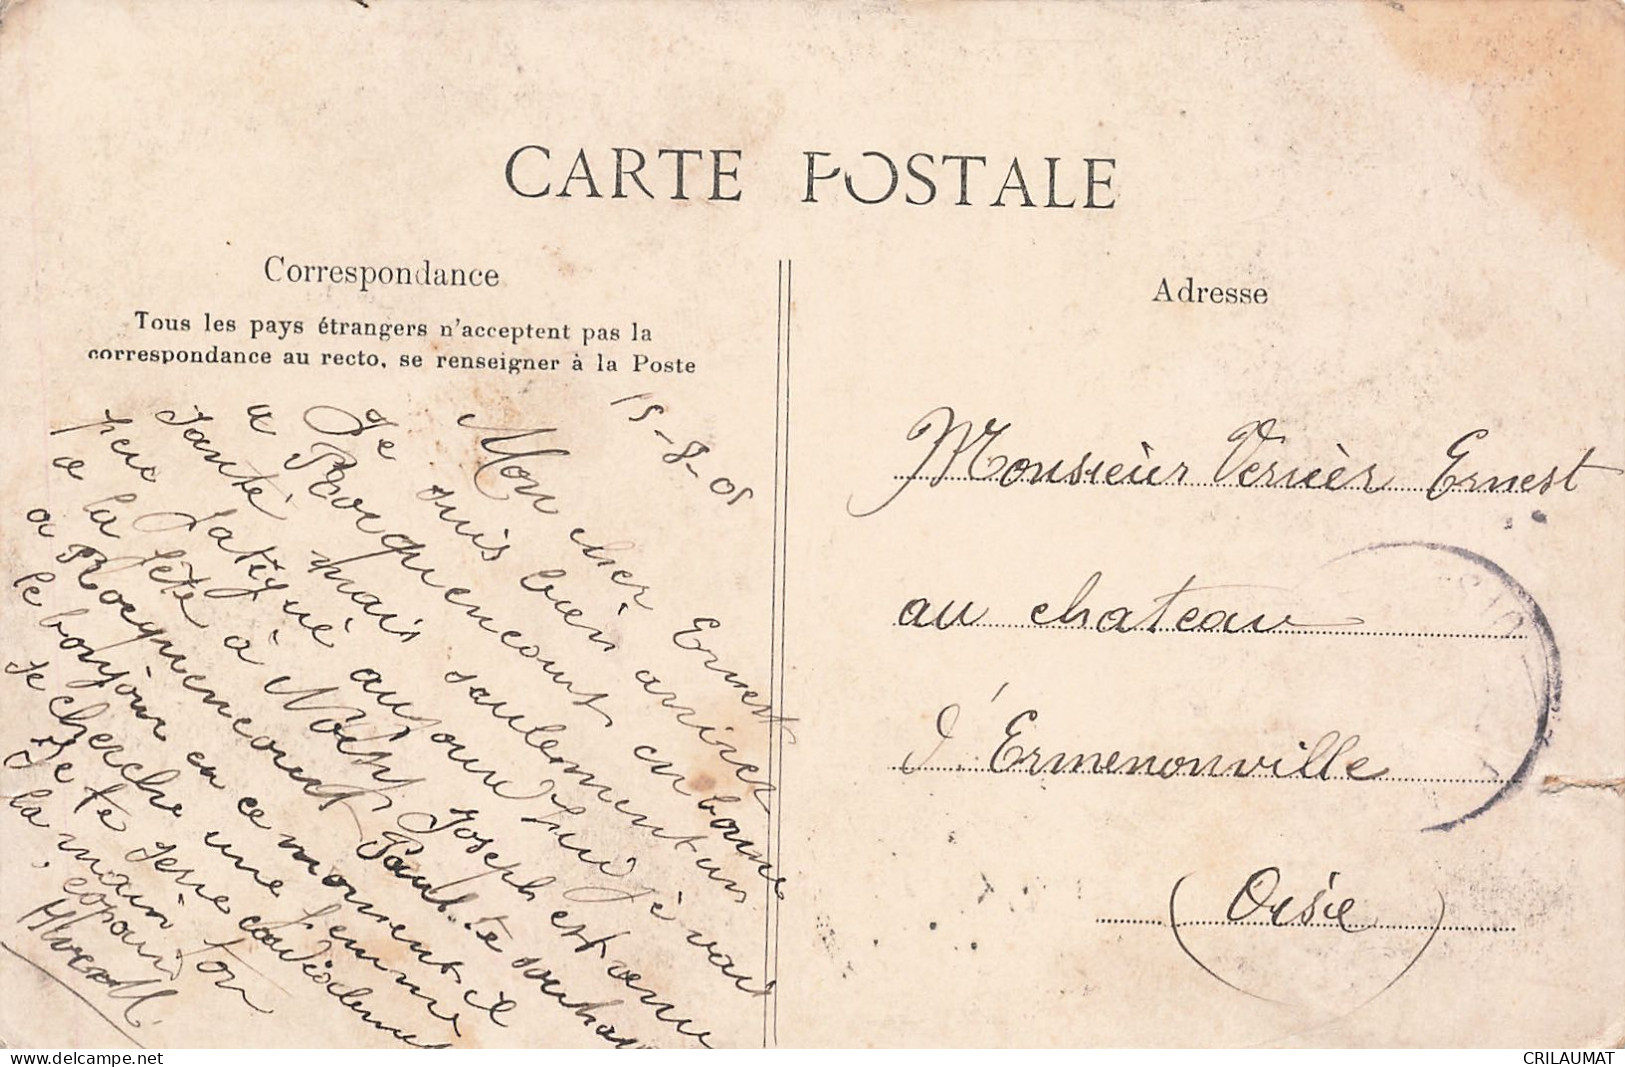 CARTE POSTALE
Correspondance
Tous les pays étrangers n'acceptent pas la
correspondance au recto, se renseigner à la Poste
15-8-05
Mon cher Ernest
Je suis bien arriver
a Rocquencourt en bonne
santé mais seulement un
peu fatigué aujourdhui je vais
a la fête à Noisy Joseph est venu
a Rocquencourt Paul te souhai
le bonjour en ce moment il
se cherche une femme
Je te serre cordialement
la main ton
copain
Adresse
Monsieur Verrier Ernest
au chateau
d'Ermenonville
(Oise)
CRILAUMAT